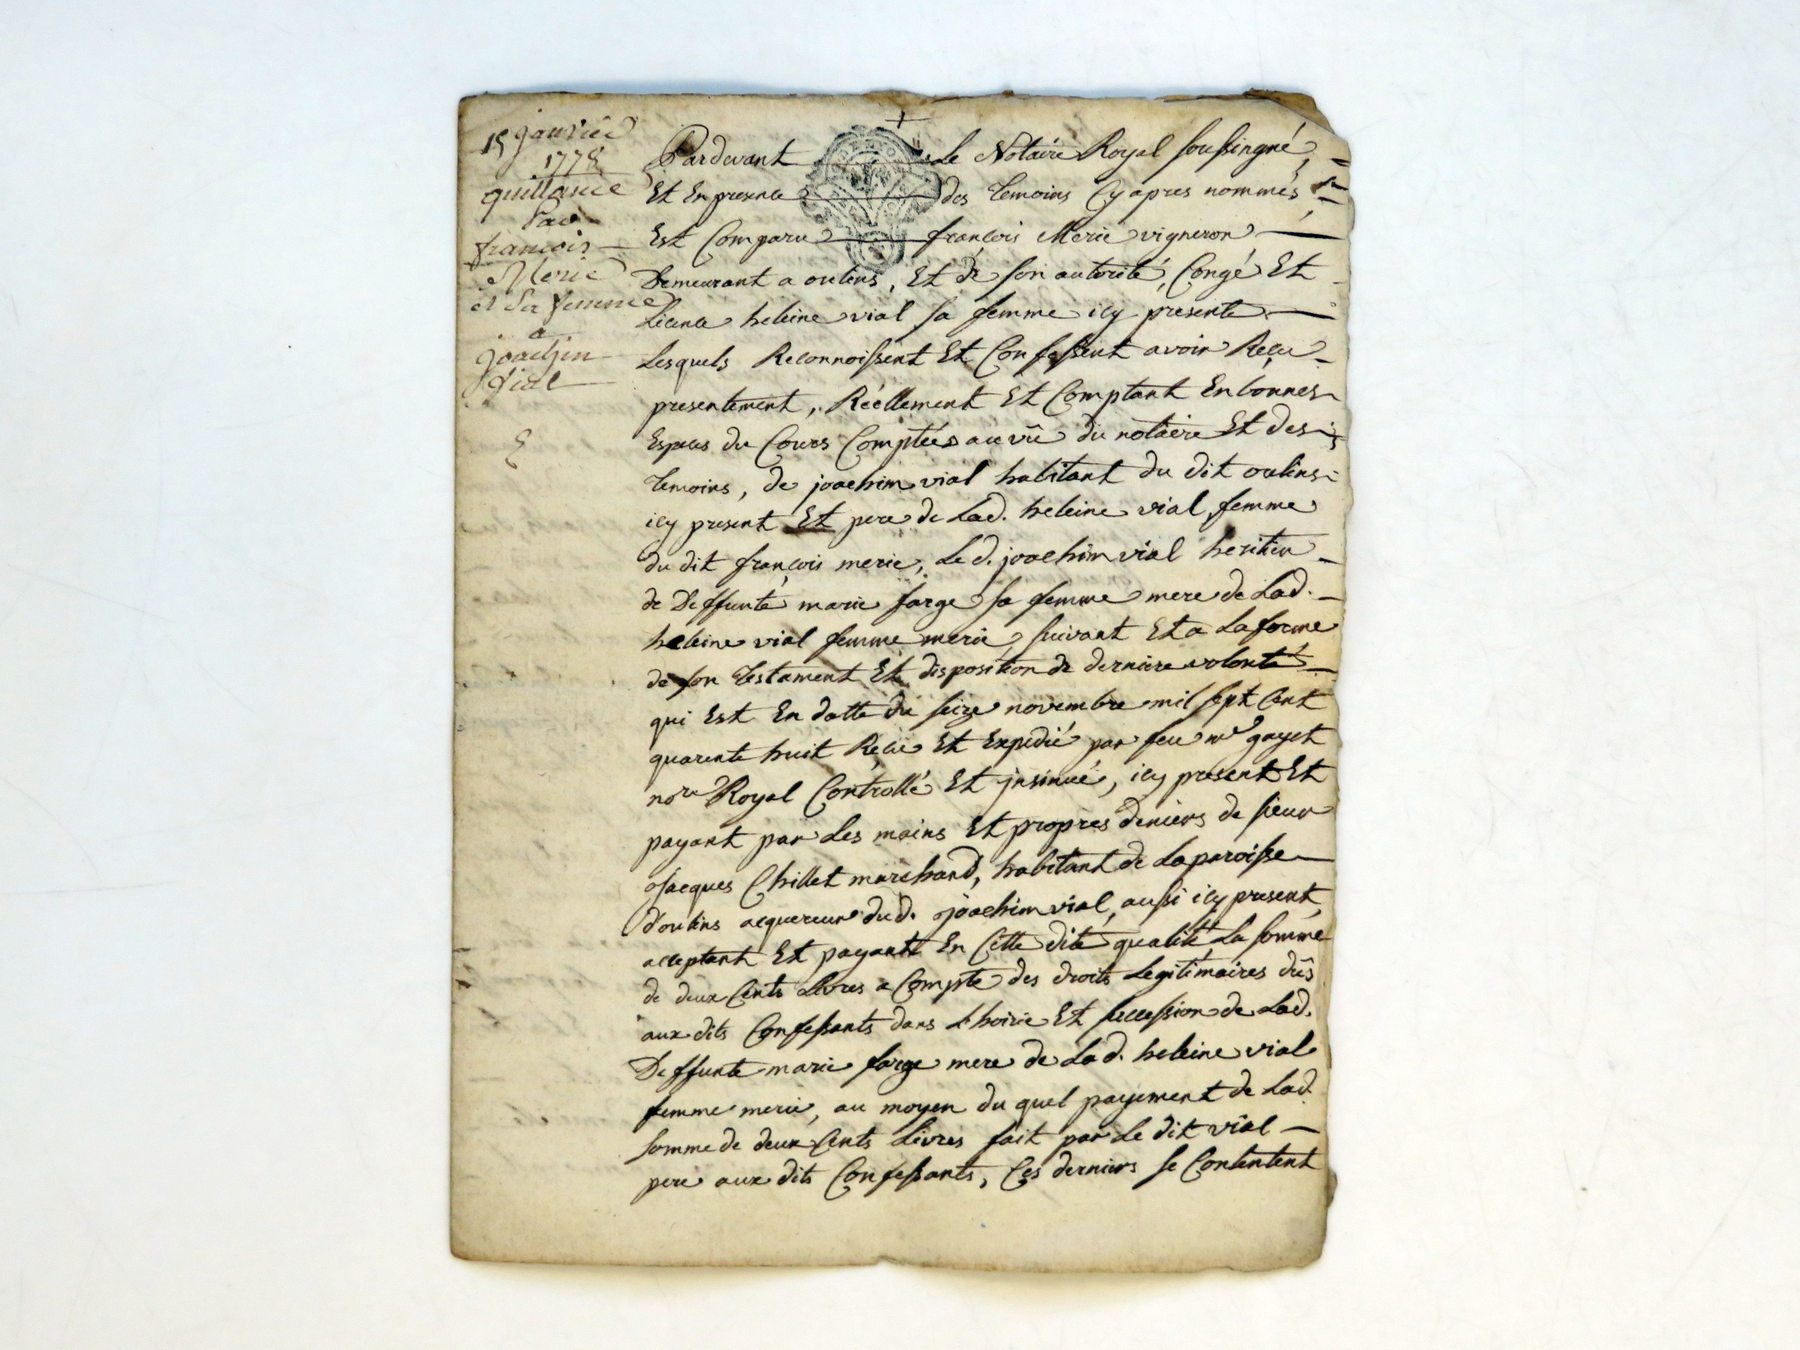 15 janvier
1778
quittance
Par
françois
Merie
et sa femme
a
joachim
Vial
Pardevant Le Notaire Royal soussingné,
Et En presence des temoins Cy apres nommés,
Est Comparu françois Merie vigneron
Demeurant a oulins, Et de son autorité, Congé Et
Licence heleine vial sa femme icy presente
Lesquels Reconnoissent Et Confessent avoir Reçu
presentement, Réellement Et Comptant En bonnes
Especes du Cours Comptées au vû du notaire Et des
temoins, de joachim vial habitant du dit oulins
icy present Et pere de Lad. heleine vial femme
du dit françois merie, Le d. joachim vial heritier
de Deffunte marie farge sa femme mere de Lad.
heleine vial femme merie, suivant Et a La forme
de son testament Et disposition de derniere volonté
qui Est En datte du seize novembre mil sept Cent
quarente huit Reçu Et Expedié par feu me gayet
nore Royal Contrôllé Et insinué, icy present Et
payant par Les mains Et propres deniers de sieur
Jacques Chillet marchand, habitant de La paroisse
d'oulins acquereur du d. joachim vial, aussi icy present,
acceptant Et payant En Cette dite qualité La somme
de deux Cents Livres a Compte des droits Legitimaires dûs
aux dits Confessants dans L'hoirie Et succession de Lad.
Deffunte marie farge mere de La d. heleine vial
femme merie, au moyen du quel payement de Lad.
somme de deux Cents Livres fait par Le dit vial
pere aux dits Confessants, Ces derniers se Contentent